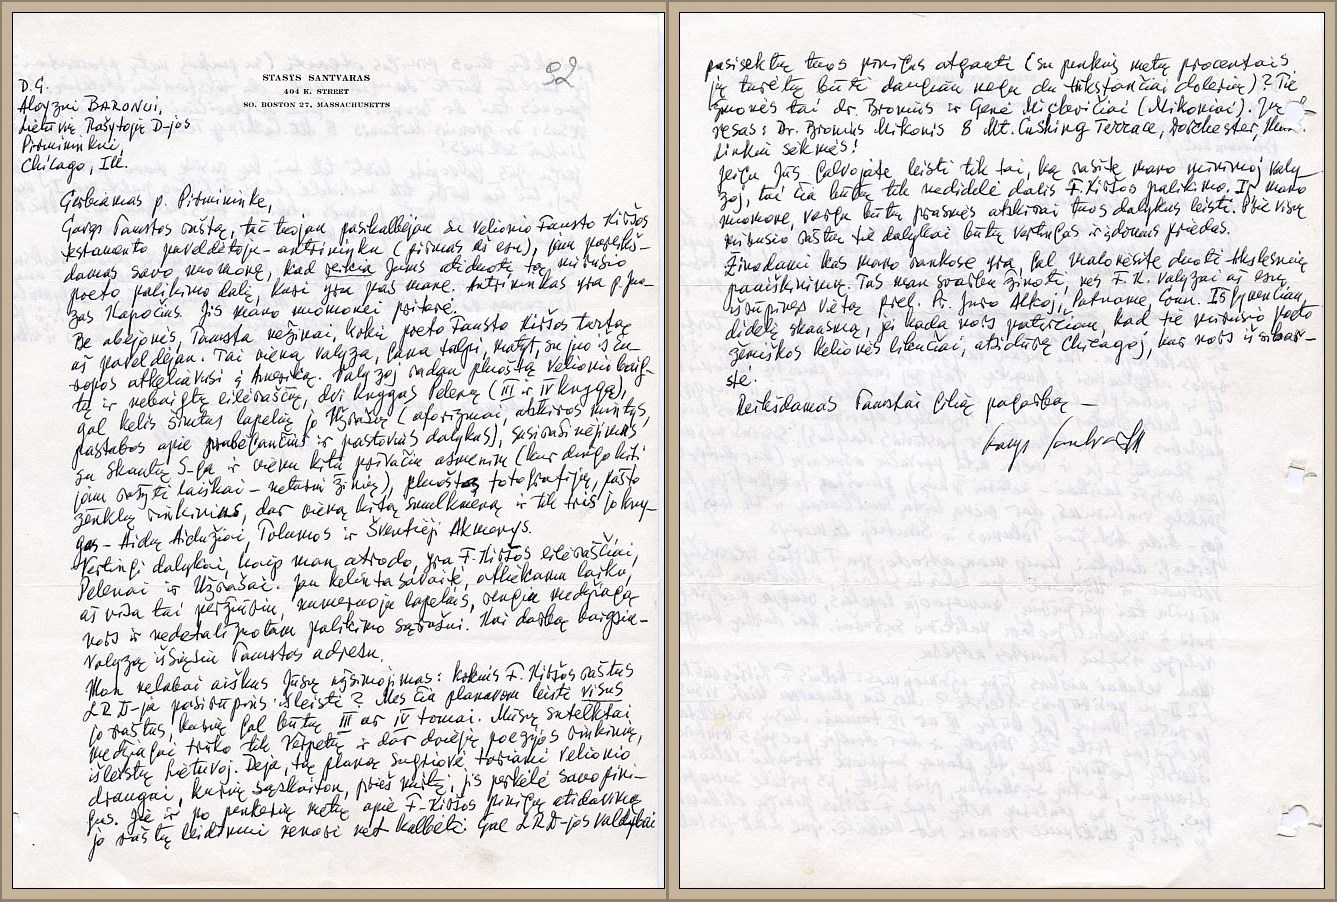 92
STASYS SANTVARAS
404 K. STREET
SO. BOSTON 27, MASSACHUSETTS
D. G.
Aloyzui BARONUI,
Lietuvių Rašytojų D-jos
Pirmininkui,
Chicago, Ill.
Gerbiamas p. Pirmininke,
Gavęs Tamstos raštą, tuč tuojau pasikalbėjau su velionio Fausto Kiršos
testamento paveldėtoju-antrininku (pirmas aš esu), jam pareikš-
damas savo nuomonę, kad reikia Jums atiduoti tą mirusio
poeto palikimo dalį, kuri yra pas mane. Antrininkas yra p. Juo-
zas Kapočius. Jis mano nuomonei pritarė.
Be abejonės, Tamsta nežinai, kokį poeto Fausto Kiršos turtą
aš paveldėjau. Tai viena valyza, gana talpi, matyt, su juo iš Eu-
ropos atkeliavusi į Ameriką. Valyzoj radau pluoštą velionio baig-
tų ir nebaigtų eilėraščių, dvi knygas Pelenų (III ir IV knygą),
gal kelis šimtus lapelių jo Užrašų (aforizmai, atskiros mintys,
pastabos apie prabėgančius ir pastovius dalykus), susirašinėjimus
su Skautų S-ga ir vienu kitu privačiu asmeniu (kur dingo kiti
jam rašyti laiškai – neturiu žinių), pluoštas fotografijų, pašto
ženklų rinkinius, dar vieną kitą smulkmeną ir tik tris jo kny-
gas – Aidų Aidužiai, Tolumos ir Šventieji Akmenys.
Vertingi dalykai, kaip man atrodo, yra F. Kiršos eilėraščiai,
Pelenai ir Užrašai. Jau kelinta savaitė, atliekamu laiku,
aš visa tai peržiūriu, numeruoju lapelius, rengiu medžiagą
nors ir nedetalizuotam palikimo sąrašui. Kai darbą baigsiu –
valyzą išsiųsiu Tamstos adresu.
Man nelabai aiškus Jūsų užsimojimas: kokius F. Kiršos raštus
LRD-ja pasirūpins išleisti? Mes čia planavom leisti visus
jo raštus, kurių gal būtų III ar IV tomai. Mūsų sutelktai
medžiagai trūko tik Verpetų ir dar dviejų poezijos rinkinių,
išleistų Lietuvoj. Deja, tų planą sugriovė tariami velionio
draugai, kurių sąskaiton, prieš mirtį, jis perkėlė savo pini-
gus. Jie ir po penkerių metų apie F. Kiršos pinigų atidavimą
jo raštų leidimui nenori net kalbėti. Gal LRD-jos valdybai
pasisektų tuos pinigus atgauti (su penkių metų procentais
jų turėtų būti daugiau negu du tūkstančiai dolerių)? Tie
žmonės tai dr. Bronius ir Genė Mickevičiai (Mikoniai). Jų ad-
resas: Dr. Bronius Mikonis 8 Mt. Cushing Terrace, Dorchester, Mass.
Linkiu sėkmės!
Jeigu Jūs galvojate leisti tik tai, ką rasite mano minimoj valy-
zoj, tai čia būtų tik nedidelė dalis F. Kiršos palikimo. Ir mano
nuomone, vargu būtų prasmės atskirai tuos dalykus leisti. Prie visų
mirusio raštų tie dalykai būtų vertingas ir įdomus priedas.
Žinodami kas mano rankose yra, gal malonėsite duoti tikslesnių
paaiškinimų. Tas man svarbu žinoti, nes F. K. valyzai aš esu
išrūpinęs vietą prel. Pr. Juro Alkoj, Putname Conn. Išgyvenčiau
didelį skausmą, jei kada nors patirčiau, kad tie mirusio poeto
žemiškos kelionės likučiai, atsidūrę Chicagoj, kur nors išsibars-
tė.
Reikšdamas Tamstai gilią pagarbą –
Stasys Santvaras